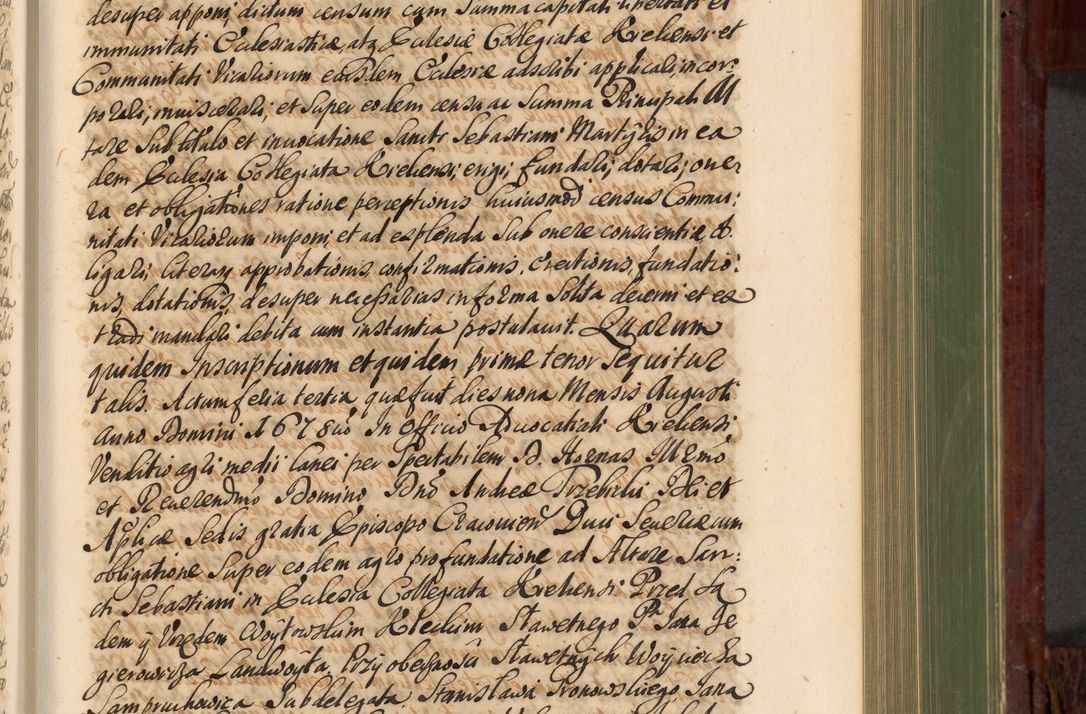 desuper apponi dictum censum cum Summa capitali libertati et
immunitati Ecclesiasticæ, atq Ecclesiæ Collegiatæ Kielcensi et
Communitati Vicariorum eiusdem Ecclesiæ adscribi applicari, incor:
porari, inuiscerari, et super eodem censu ac Summa Principali Al
tare Sub titulo et inuocatione Sancti Sebastiani Martyris in ea
dem Ecclesia Collegiata Kielcensi, erigi, fundari, dotari, one:
ra et obligationes ratione perceptionis huiusmodi census Commu:
nitati Vicariorum imponi, et ad explenda Sub onere conscientiæ ob
ligari, literas approbationis, confirmationis, erectionis, fundatio:
nis, dotationis, desuper necessarias in forma Solita decerni et ex
tradi mandari debita cum instantia postulauit. Quarum
quidem Inscriptionum et quidem primæ tenor Sequitur
talis. Actum feria tertia quæ fuit dies nona Mensis Augusti
Anno Domini 1678uo In Officio Aduocatiali Kielcensi
Venditio agri medii lanei per Spectabilem D. Hornas Illrmo
et Reuerendmo Domino Dno Andreæ Trzebicki Dei et
Aplicæ Sedis gratia Episcopo Cracouien Duci Seueriæ cum
obligatione Super eodem agro pro fundatione ad Altare San:
cti Sebastiani in Ecclesia Collegiata Kielcensi Przed Są
dem y Vrzędem Woytowskim Kieckim Sławetnego P. Jana Je
gierowicza Landwoyta, Przy obecnosci Sławetnych Woyciecha
Sampruchowica Subdelegata, Stanisława Pronowskiego Jana